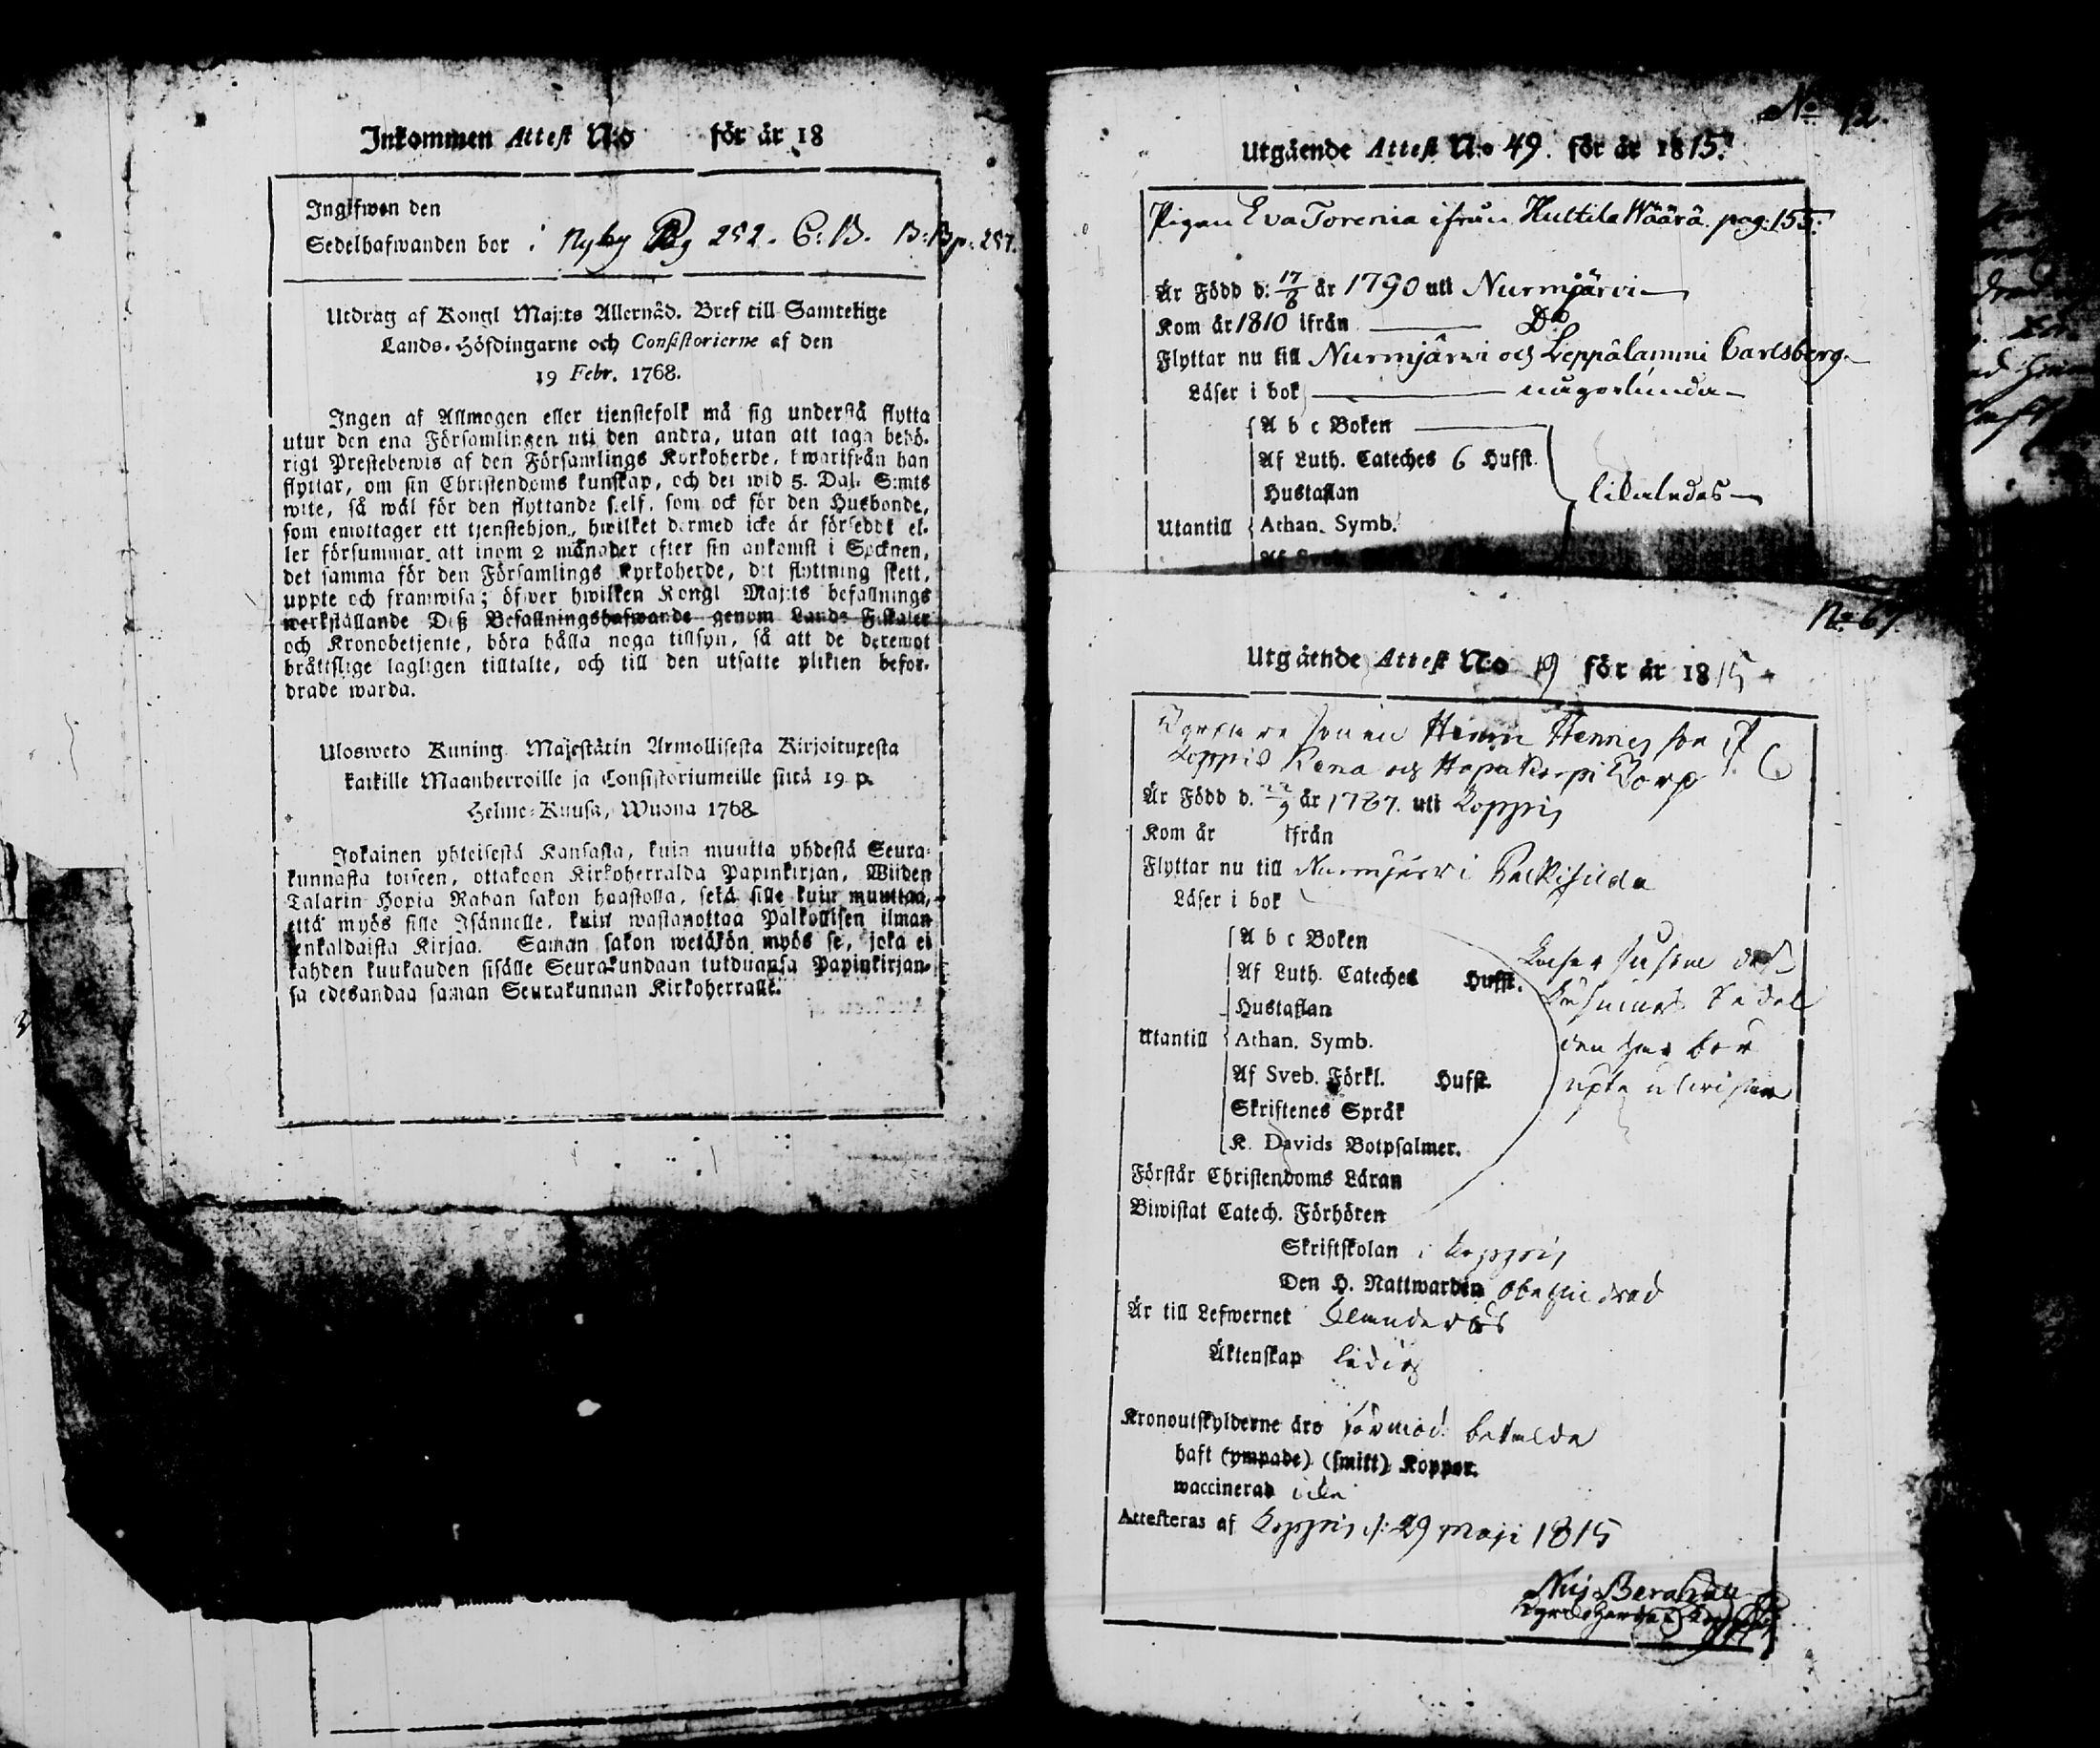 Inkommen Attest N:o för år 18
Ingifwen den
Sedelhafwanden bor i Nyby Pag 252. C:B. B:B p: 257.
Utdrag af Kongl Maj:ts Allernåd. Bref till Samtelige
Lands-Höfdingarne och Consistorierne af den
19 Febr. 1768.
Ingen af Allmogen eller tjenstefolk må sig understå flytta
utur den ena Församlingen uti den andra, utan att taga behö-
rigt Prestebewis af den Församlings Kyrkoherde, hwarifrån han
flyttar, om sin Christendoms kunskap, och det wid 5. Dal. S:mts
wite, så wäl för den flyttande sielf, som ock för den Husbonde,
som emottager ett tjenstehjon, hwilket dermed icke är försedt el-
ler försummar att inom 2 månader efter sin ankomst i Socknen,
det samma för den Församlings Kyrkoherde, dit flyttning skett,
uppte och framwisa; öfwer hwilken Kongl Maj:ts befallnings
werkställande Deß Befallningshafwande genom Lands Fiskaler
och Kronobetjente, böra hålla noga tillsyn, så att de deremot
bråttslige lagligen tilltalte, och till den utsatte plikten befor-
drade warda.
Ulosweto Kuning. Majestätin Armollisesta Kirjoituxesta
kaikille Maanherroille ja Consistoriumeille siitä 19 p.
Helme-Kuusa, Wuona 1768
Jokainen yhteisestä Kansasta, kuin muutta yhdestä Seura-
kunnasta toiseen, ottakoon Kirkoherralda Papinkirjan, Wiiden
Talarin Hopia Rahan sakon haastolla, sekä sille kuin muuttaa,
että myös sille Isännelle, kuin wastanottaa Palkollisen ilman
senkaldaista Kirjaa. Saman sakon wetäkön myös se, joka ei
kahden kuukauden sisälle Seurakundaan tulduansa Papinkirjan-
sa edesandaa saman Seurakunnan Kirkoherralle.
No 42.
Utgående Attest N:o 49. för år 1815.
Pigan Eva Torenia ifrån Huttila Wäärä pag: 155.
Är Född d: 17/8 år 1790 uti Nurmjärvi
Kom år 1810 ifrån Do
Flyttar nu till Nurmjärwi och Leppälammi Carlsberg
Läser i bok någorlunda
A b c Boken
Af Luth. Cateches 6 Hufst.
Hustaflan likaledes
Utantill Athan. Symb.
Af Sveb.
No 67.
Utgående Attest N:o 19 för år 1815
sonen Henric Hennes son
Loppis Rena och Hapakorpi Torp
Är Född d. 22/9 år 1787. uti Loppis
Kom år ifrån
Flyttar nu till Nurmjärwi
Läser i bok
A b c Boken
Af Luth. Cateches Hufst.
Hustaflan
Utantill Athan. Symb. den har bör
Af Sveb. Förkl. Hufst.
Skriftenes Språk
K. Davids Botpsalmer.
Förstår Christendoms Läran
Biwistat Catech. Förhören
Skriftskolan i Loppis
Den H. Nattwarden obehindrad
Är till Lefwernet
Äktenskap ledig
Kronoutskylderne äro förmod. betalda
haft (ympade) (smitt) Koppor.
waccinerad icke
Attesteras af Loppis d: 29 Maji 1815
Kyrkoherde